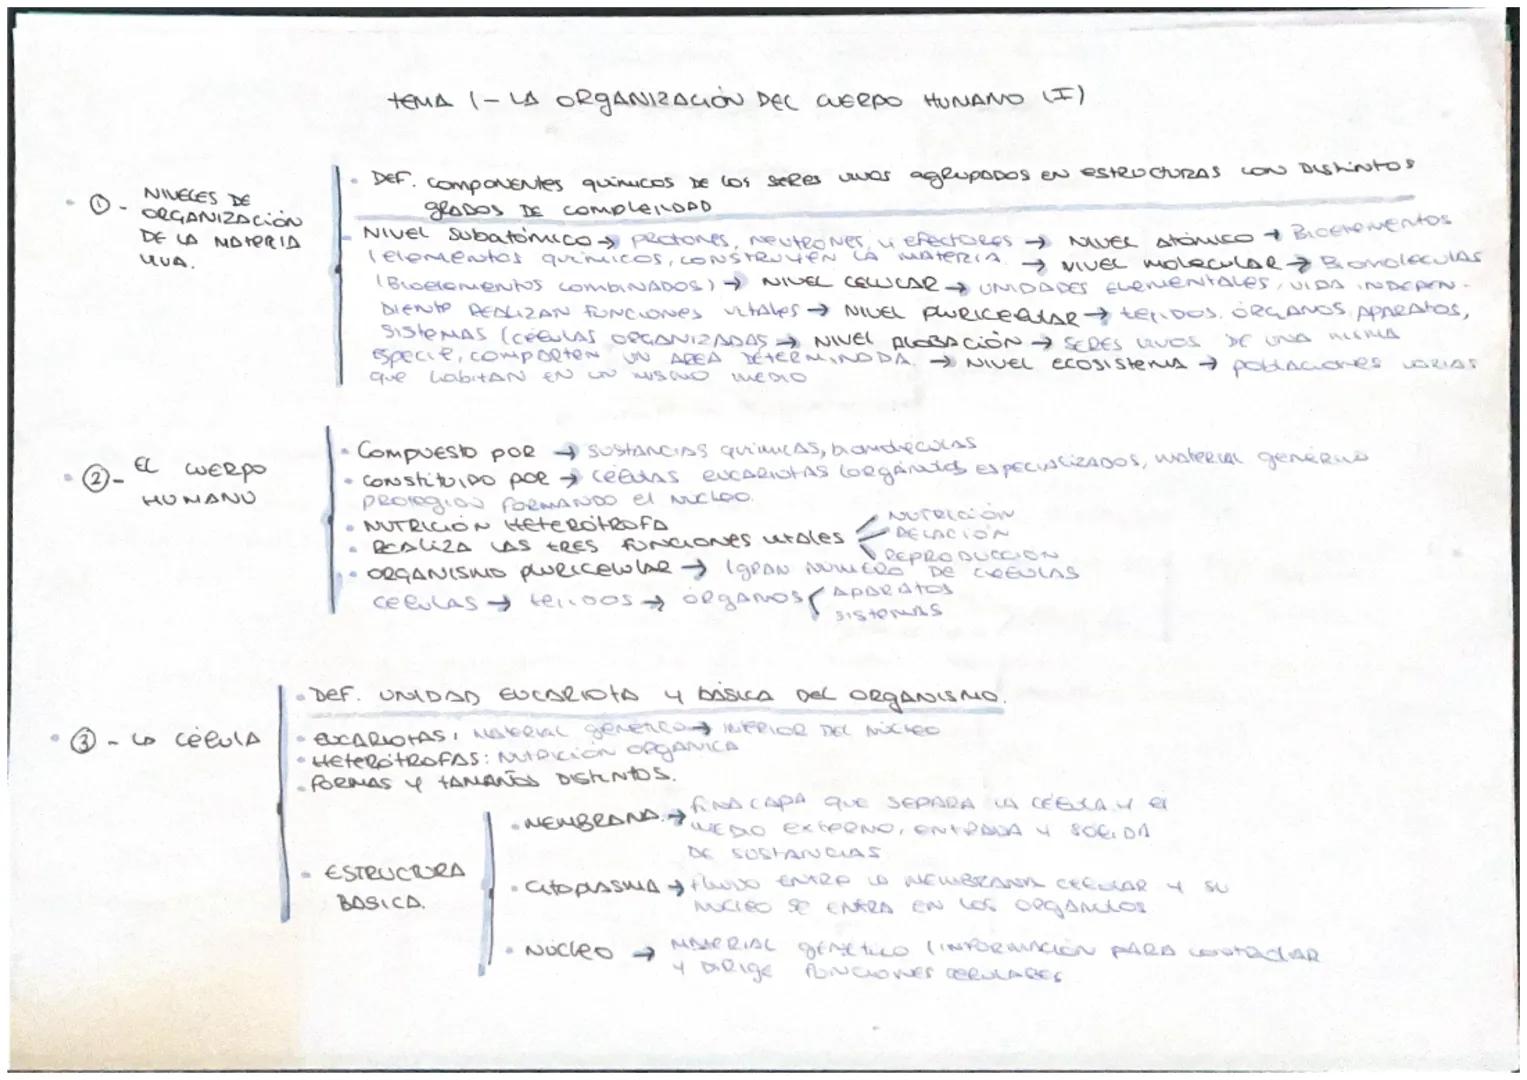 TEMA 1 - LA ORGANIZACIÓN DEL CUERPO HUMANO (I)
①- NIVELES DE
ORGANIZACIÓN
DE LA MATERIA
VIVA.
• DEF. COMPONENTES QUÍMICOS DE LOS SERES VIVOS AGRUPADOS EN ESTRUCTURAS CON DISTINTOS
GRADOS DE COMPLEJIDAD
NIVEL SUBATÓMICO → PROTONES, NEUTRONES, Y EFECTORES → NIVEL ATÓMICO → BIOELEMENTOS
(ELEMENTOS QUÍMICOS, CONSTRUYEN LA MATERIA. → NIVEL MOLECULAR → BIOMOLÉCULAS
(BIOELEMENTOS COMBINADOS) → NIVEL CELULAR → UNIDADES ELEMENTALES, VIDA INDEPEN-
DIENTE REALIZAN FUNCIONES VITALES → NIVEL PLURICELULAR → TEJIDOS, ÓRGANOS, APARATOS,
SISTEMAS (CÉLULAS ORGANIZADAS → NIVEL POBLACIÓN → SERES VIVOS DE UNA MISMA
ESPECIE, COMPARTEN UN AREA DETERMINADA. → NIVEL ECOSISTEMA → POBLACIONES VARIAS
QUE HABITAN EN UN MISMO MEDIO
②- EL CUERPO
HUMANO
• COMPUESTO POR → SUSTANCIAS QUÍMICAS, BIOMOLÉCULAS
• CONSTITUIDO POR → CÉLULAS EUCARIOTAS (ORGÁNULOS ESPECIALIZADOS, MATERIAL GENÉRICO
PROTEGIDO FORMANDO EL NÚCLEO.
• NUTRICIÓN HETERÓTROFA
• REALIZA LAS TRES FUNCIONES VITALES
NUTRICIÓN
RELACIÓN
REPRODUCCIÓN
• ORGANISMO PLURICELULAR → (GRAN NÚMERO DE CÉLULAS
CÉLULAS → TEJIDOS → ÓRGANOS
APARATOS
SISTEMAS
③ - LA CÉLULA
• DEF. UNIDAD EUCARIOTA Y BÁSICA DEL ORGANISMO.
• EUCARIOTAS: MATERIAL GENÉTICO → INTERIOR DEL NÚCLEO
• HETERÓTROFAS: NUTRICIÓN ORGÁNICA
• FORMAS Y TAMAÑOS DISTINTOS.
• ESTRUCTURA
BÁSICA.
• MEMBRANA. → FINA CAPA QUE SEPARA LA CÉLULA Y EL
MEDIO EXTERNO, ENTRADA Y SALIDA
DE SUSTANCIAS
• CITOPLASMA → FLUIDO ENTRE LA MEMBRANA CELULAR Y SU
NÚCLEO SE ENTRA EN LOS ORGÁNULOS
• NÚCLEO → MATERIAL GENÉTICO (INFORMACIÓN PARA CONTROLAR
Y DIRIGE FUNCIONES CELULARES